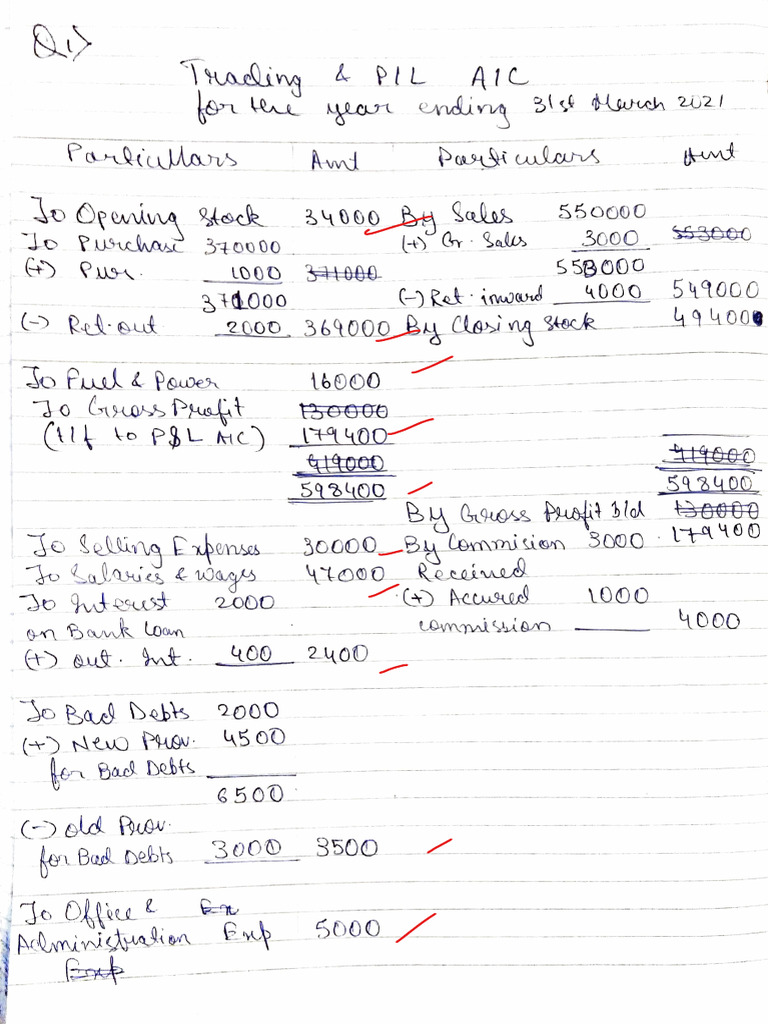 Q1>
Trading & P/L A/C
for the year ending 31st March 2021
Particullars Amt Particulars Amt
To Opening Stock 34000 By Sales 550000
To Purchase 370000 (+) Cr. Sales 3000 553000
(+) Pur. 1000 371000 553000
371000 (-) Ret. inward 4000 549000
(-) Ret. out 2000 369000 By Closing Stock 49400
To Fuel & Power 16000
To Gross Profit 130000
(t/f to P&L A/C) 179400
419000 419000
598400 598400
By Gross Profit b/d 130000
To Selling Expenses 30000 By Commision 3000 179400
To Salaries & wages 47000 Received
To Interest 2000 (+) Accured 1000
on Bank Loan commission 4000
(+) out. Int. 400 2400
To Bad Debts 2000
(+) New Prov. 4500
for Bad Debts
6500
(-) Old Prov.
for Bad Debts 3000 3500
To Office & Ex
Administration Exp 5000
Exp